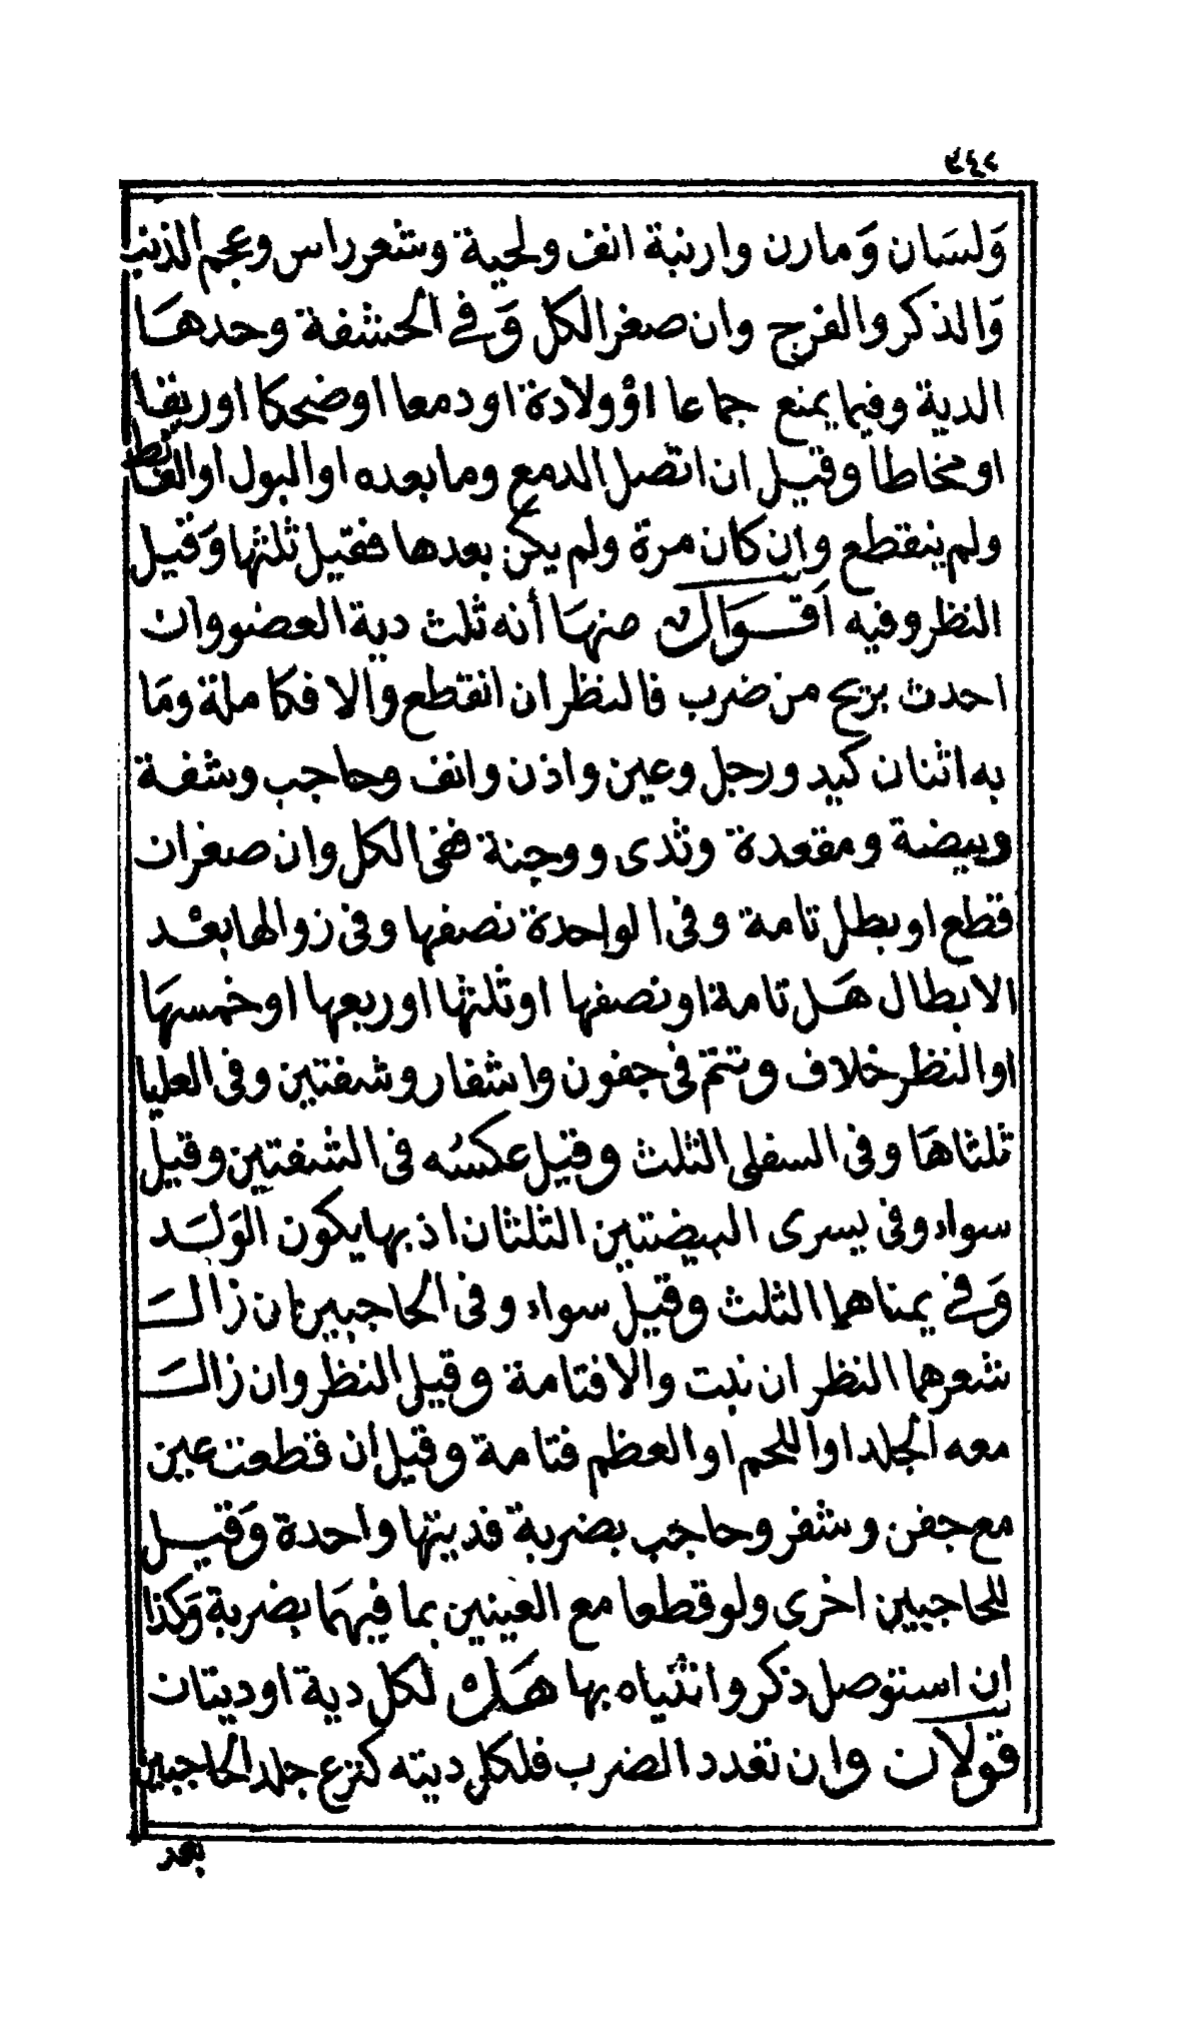 ولسان ومارن وارنبة انف ولحية وشعر راس وعجم الذنب
والذكر والفرج وان صغر الكل وفي الحشفة وحدها
الدية وفيما يمنع جماعا اؤ ولادة او دمعا او ضحكا او ريقا
او مخاطا وقيل ان اتصل الدمع وما بعده او البول او الغائط
ولم ينقطع وان كان مرة ولم يكن بعدها فقيل ثلثها وقيل
النظر وفيه اقوال منها أنه ثلث دية العضو وان
احدث بزيح من ضرب فالنظر ان انقطع والا فكاملة وما
به اثنان كيد ورجل وعين واذن وانف وحاجب وشفة
وبيضة ومقعدة وثدى ووجنة ففى الكل وان صغر ان
قطع او بطل تامة وفى الواحدة نصفها وفى زوالها بعد
الابطال هل تامة او نصفها او ثلثها او ربعها او خمسها
او النظر خلاف وتتم فى جفون واشفار وشفتين وفى العليا
ثلثاها وفى السفلى الثلث وقيل عكسه فى الشفتين وقيل
سواء وفى يسرى البيضتين الثلثان اذ بها يكون الولد
وفي يمناهما الثلث وقيل سواء وفى الحاجبين ان زال
شعرهما النظر ان نبت والا فتامة وقيل النظر وان زال
معه الجلد او اللحم او العظم فتامة وقيل ان قطعت عين
مع جفن وشفر وحاجب بضربة فديتها واحدة وقيل
للحاجبين اخرى ولو قطعا مع العينين بما فيهما بضربة وكذا
ان استوصل ذكر وانثياه بها هل لكل دية او ديتان
قولان وان تعدد الضرب فلكل ديته كنزع جلد الحاجبين
بعد